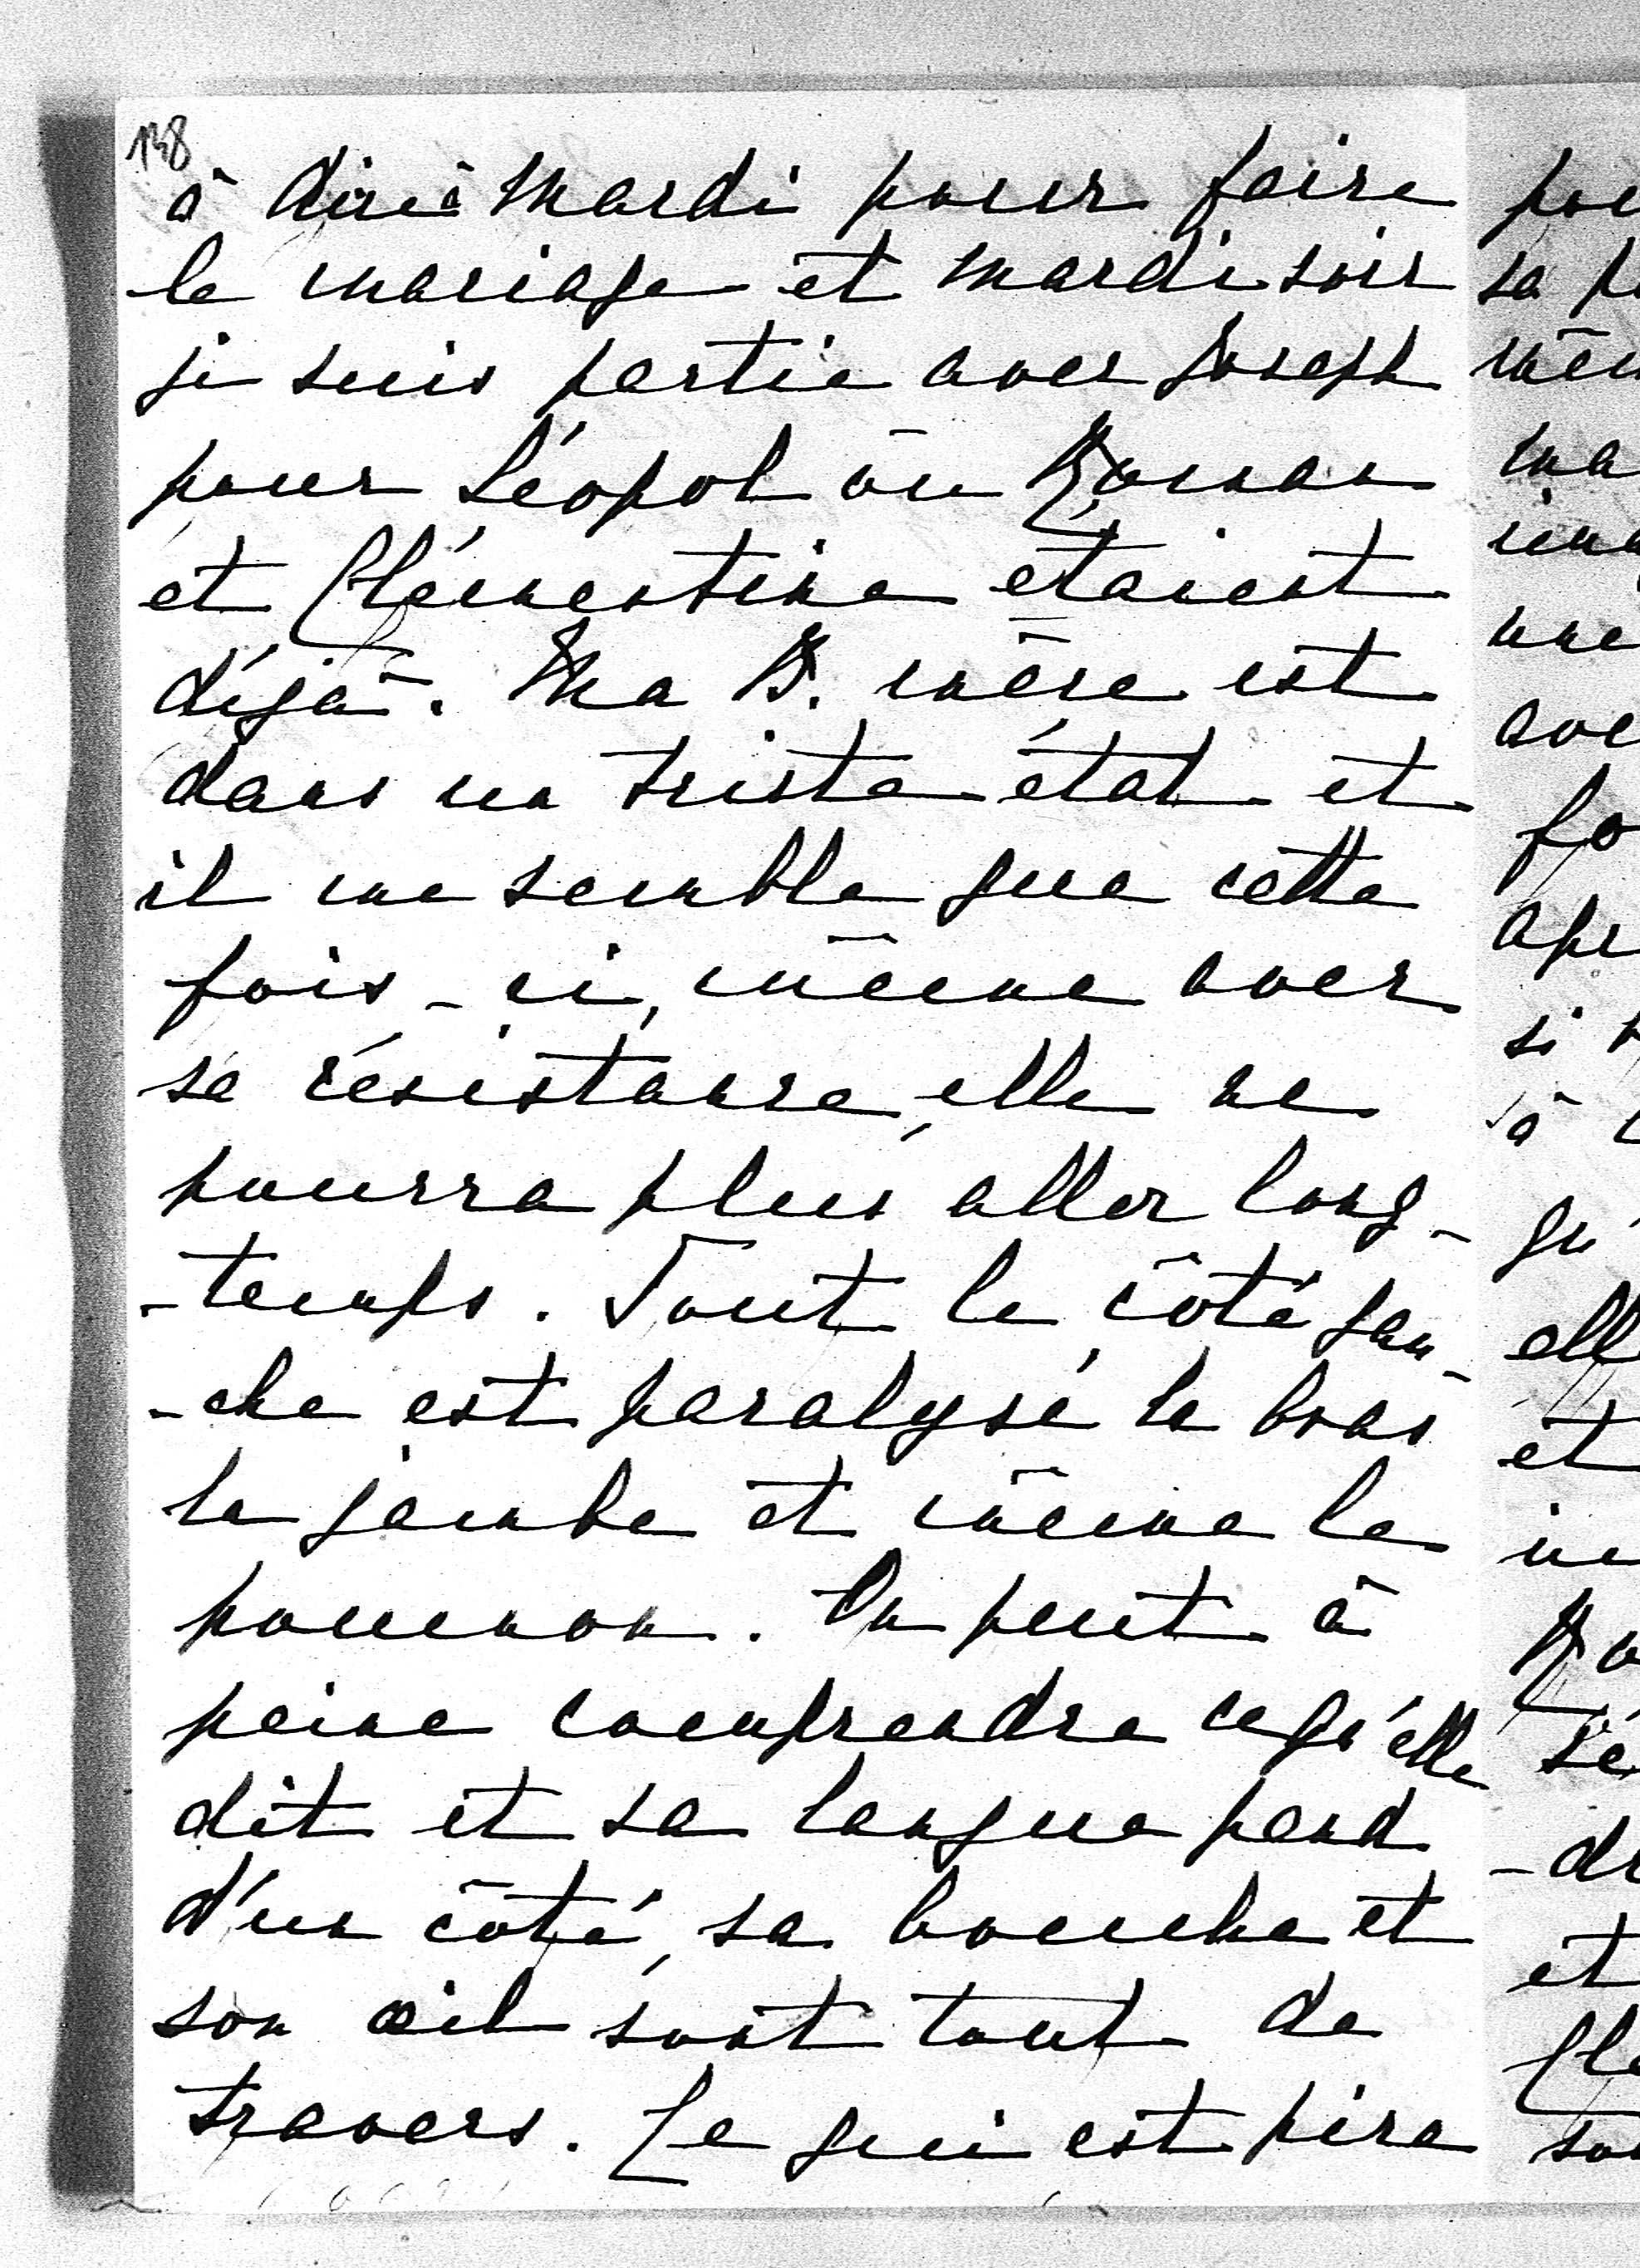 138
à dire à mardi pour faire
le mariage et mardi soir
je suis partie avec Joseph
pour Léopol où Roman
et Clémentine étaient
déjà. Ma B. mère est
dans un triste état et
il me semble que cette
fois-ci, même avec
sa résistance, elle ne
pourra plus aller long-
-temps. Tout le côté gau-
-che est paralysé le bras
la jambe et même le
poumon. On peut à
peine comprendre ce qu'elle
dit et sa langue pend
d'un côté, sa bouche et
son œil sont tout de
travers. Ce qui est pire